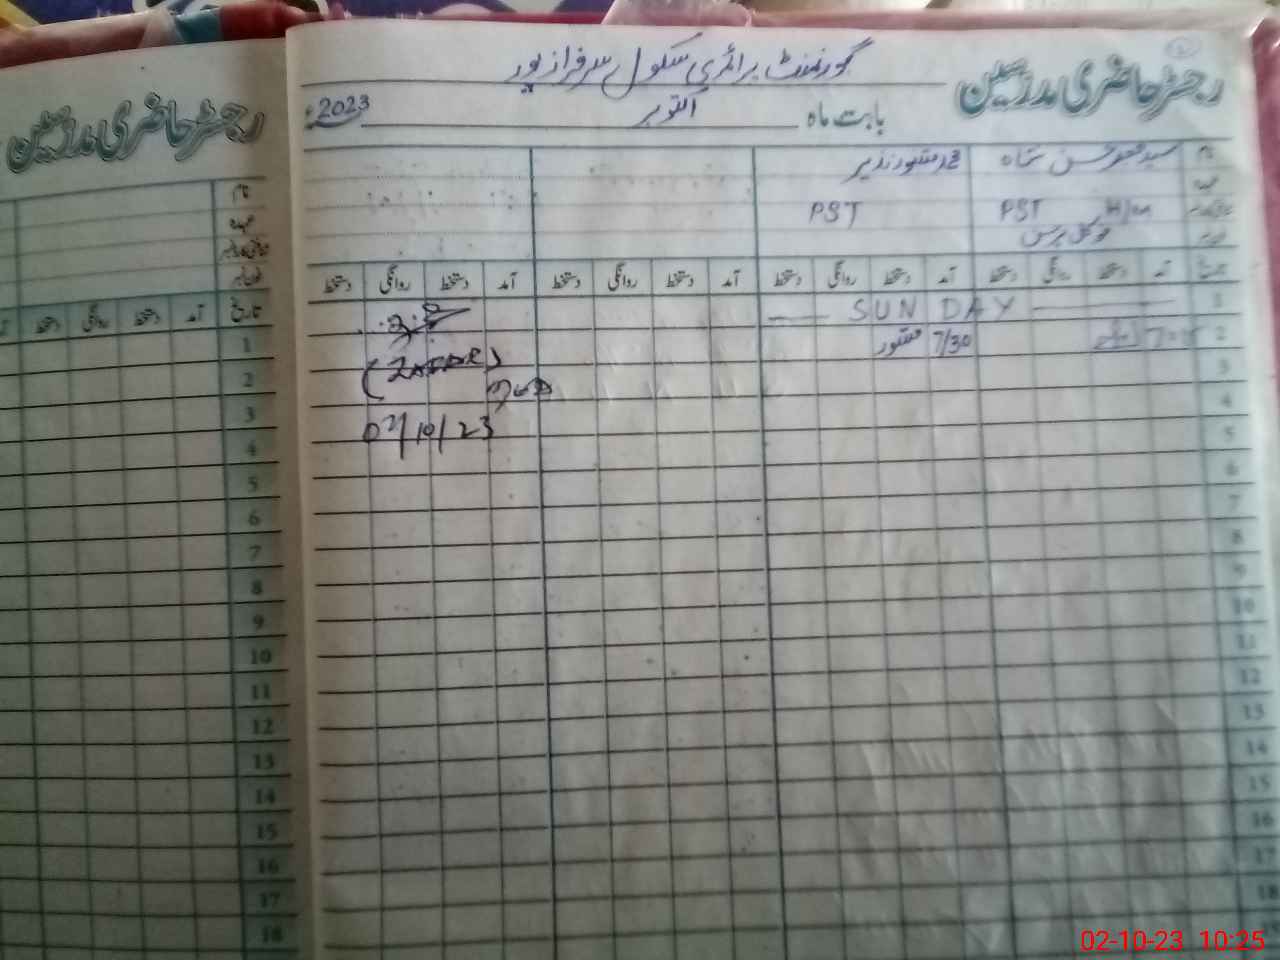 رجسٹر حاضری مدرسین
گورنمنٹ پرائمری سکول سرفراز پور
بابت ماہ اکتوبر 2023ء
نام سید محمد حسن شاہ محمد منشور نذیر
عہدہ
PST H/M PST
تاریخ آمد دستخط روانگی دستخط آمد دستخط روانگی دستخط آمد دستخط روانگی دستخط آمد دستخط روانگی دستخط
1 SUNDAY
2 7/30 منشور
3
4
5
6
7
8
9
10
11
12
13
14
15
16
17
18
02/10/23
رجسٹر حاضری مدرسین
نام
عہدہ
تاریخ آمد دستخط روانگی دستخط
1
2
3
4
5
6
7
8
9
10
11
12
13
14
15
16
17
18
02-10-23 10:25